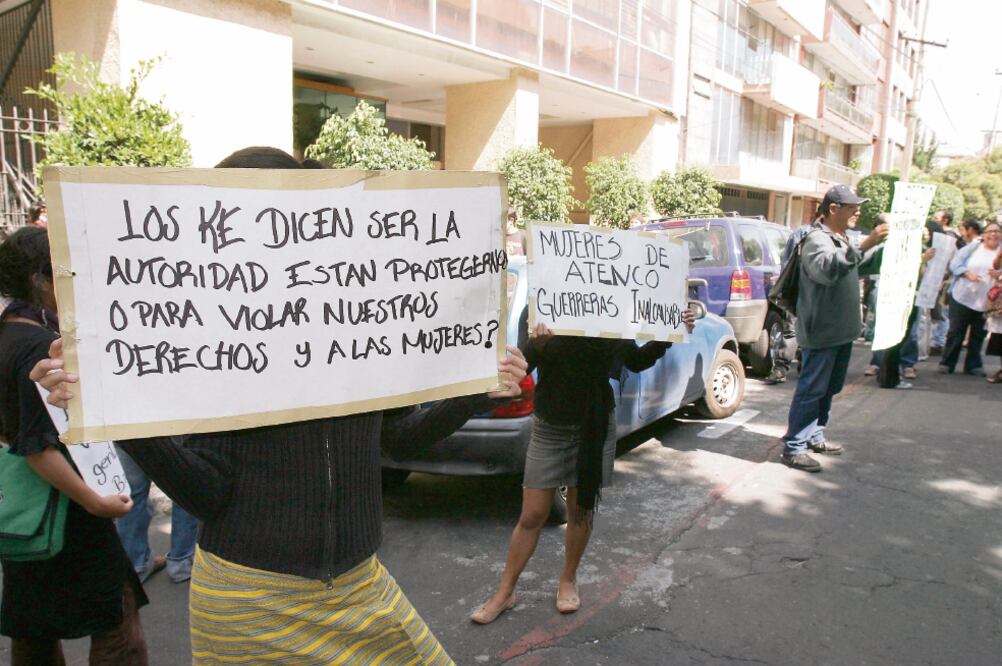 LOS KE DICEN SER LA
AUTORIDAD ESTAN PROTEGERNOS
O PARA VIOLAR NUESTROS
DERECHOS Y A LAS MUJERES?
MUJERES DE
ATENCO
GUERRERAS INALCANSABLES